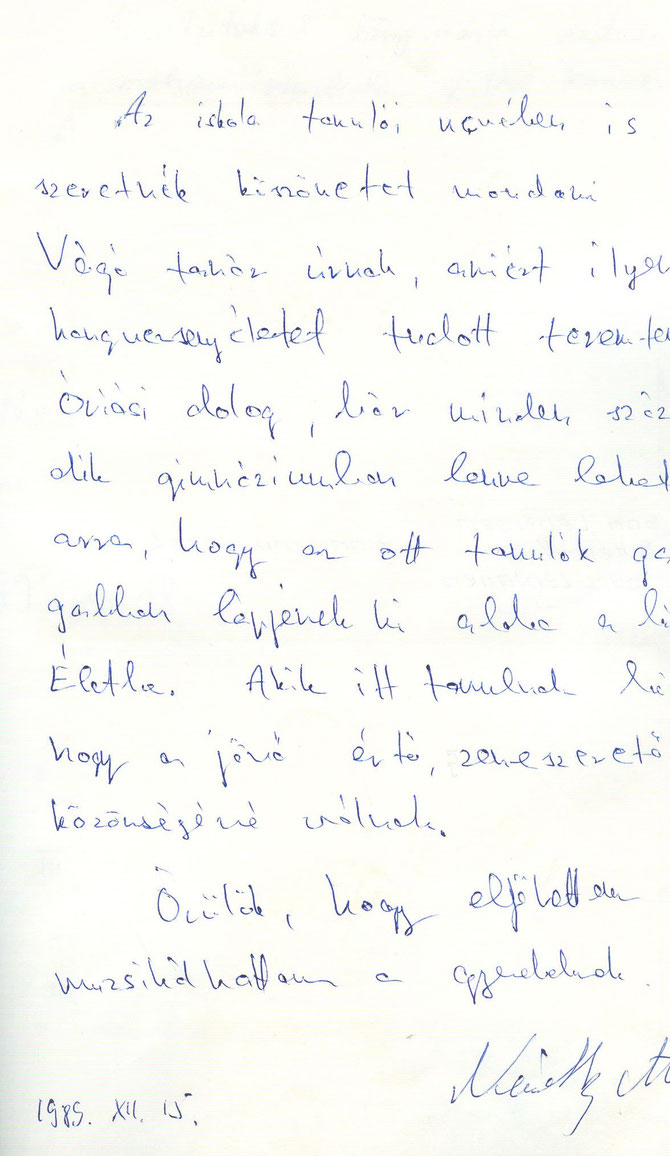 Az iskola tanulói nevében is
szeretnék köszönetet mondani
Vágó tanár úrnak, amiért ilyen
hangversenyéletet tudott teremte
Óriási dolog, bár minden száz
dik gimnáziumban lenne lehet
arra, hogy az ott tanulók ga
gabban lépjenek ki abba a
Életbe. Akik itt tanulnak
hogy a jövő értő, zeneszerető
közönségévé válnak.
Örülök, hogy eljöhettem
muzsikálhattam a gyerekeknek.
1985. XII. 15.